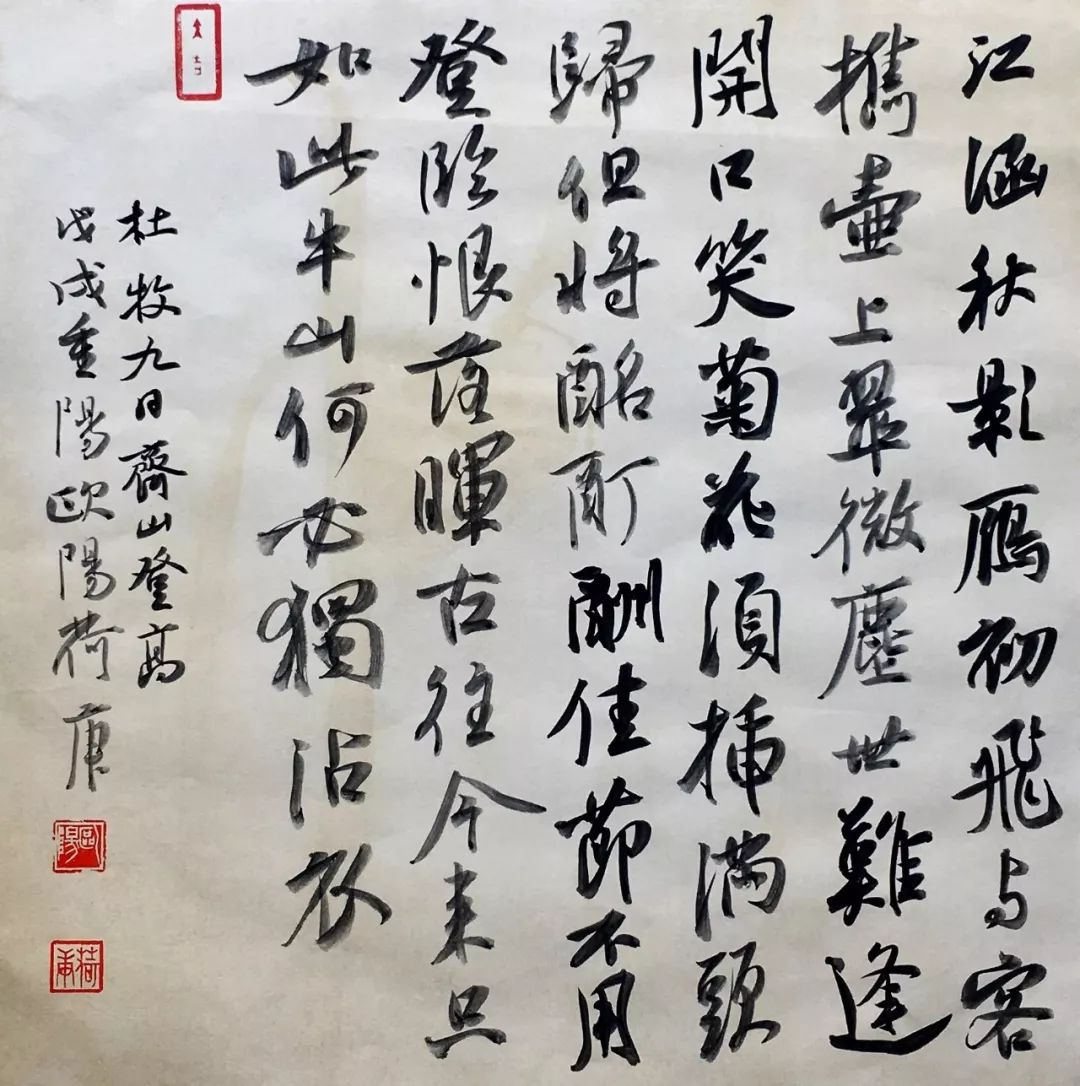 江涵秋影鴈初飛与客
攜壷上翠微塵世難逢
開口笑菊花須揷滿頭
歸但將酩酊酬佳節不用
登臨恨落暉古往今来只
如此牛山何必獨沾衣
杜牧九日齊山登高
戊戌重陽歐陽荷庚
歐陽
荷庚